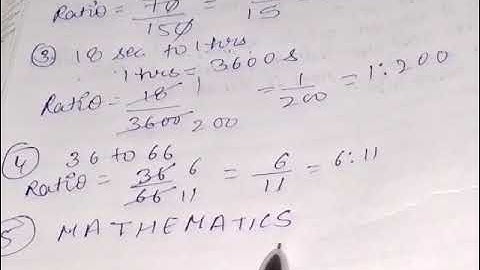 Ratio = 70/150 = /15
③ 18 sec to 1 hrs
1 hrs = 3600 s
Ratio = 18/3600 1/200 = 1/200 = 1:200
④ 36 to 66
Ratio = 36/66 6/11 = 6/11 = 6:11
⑤ MATHEMATICS